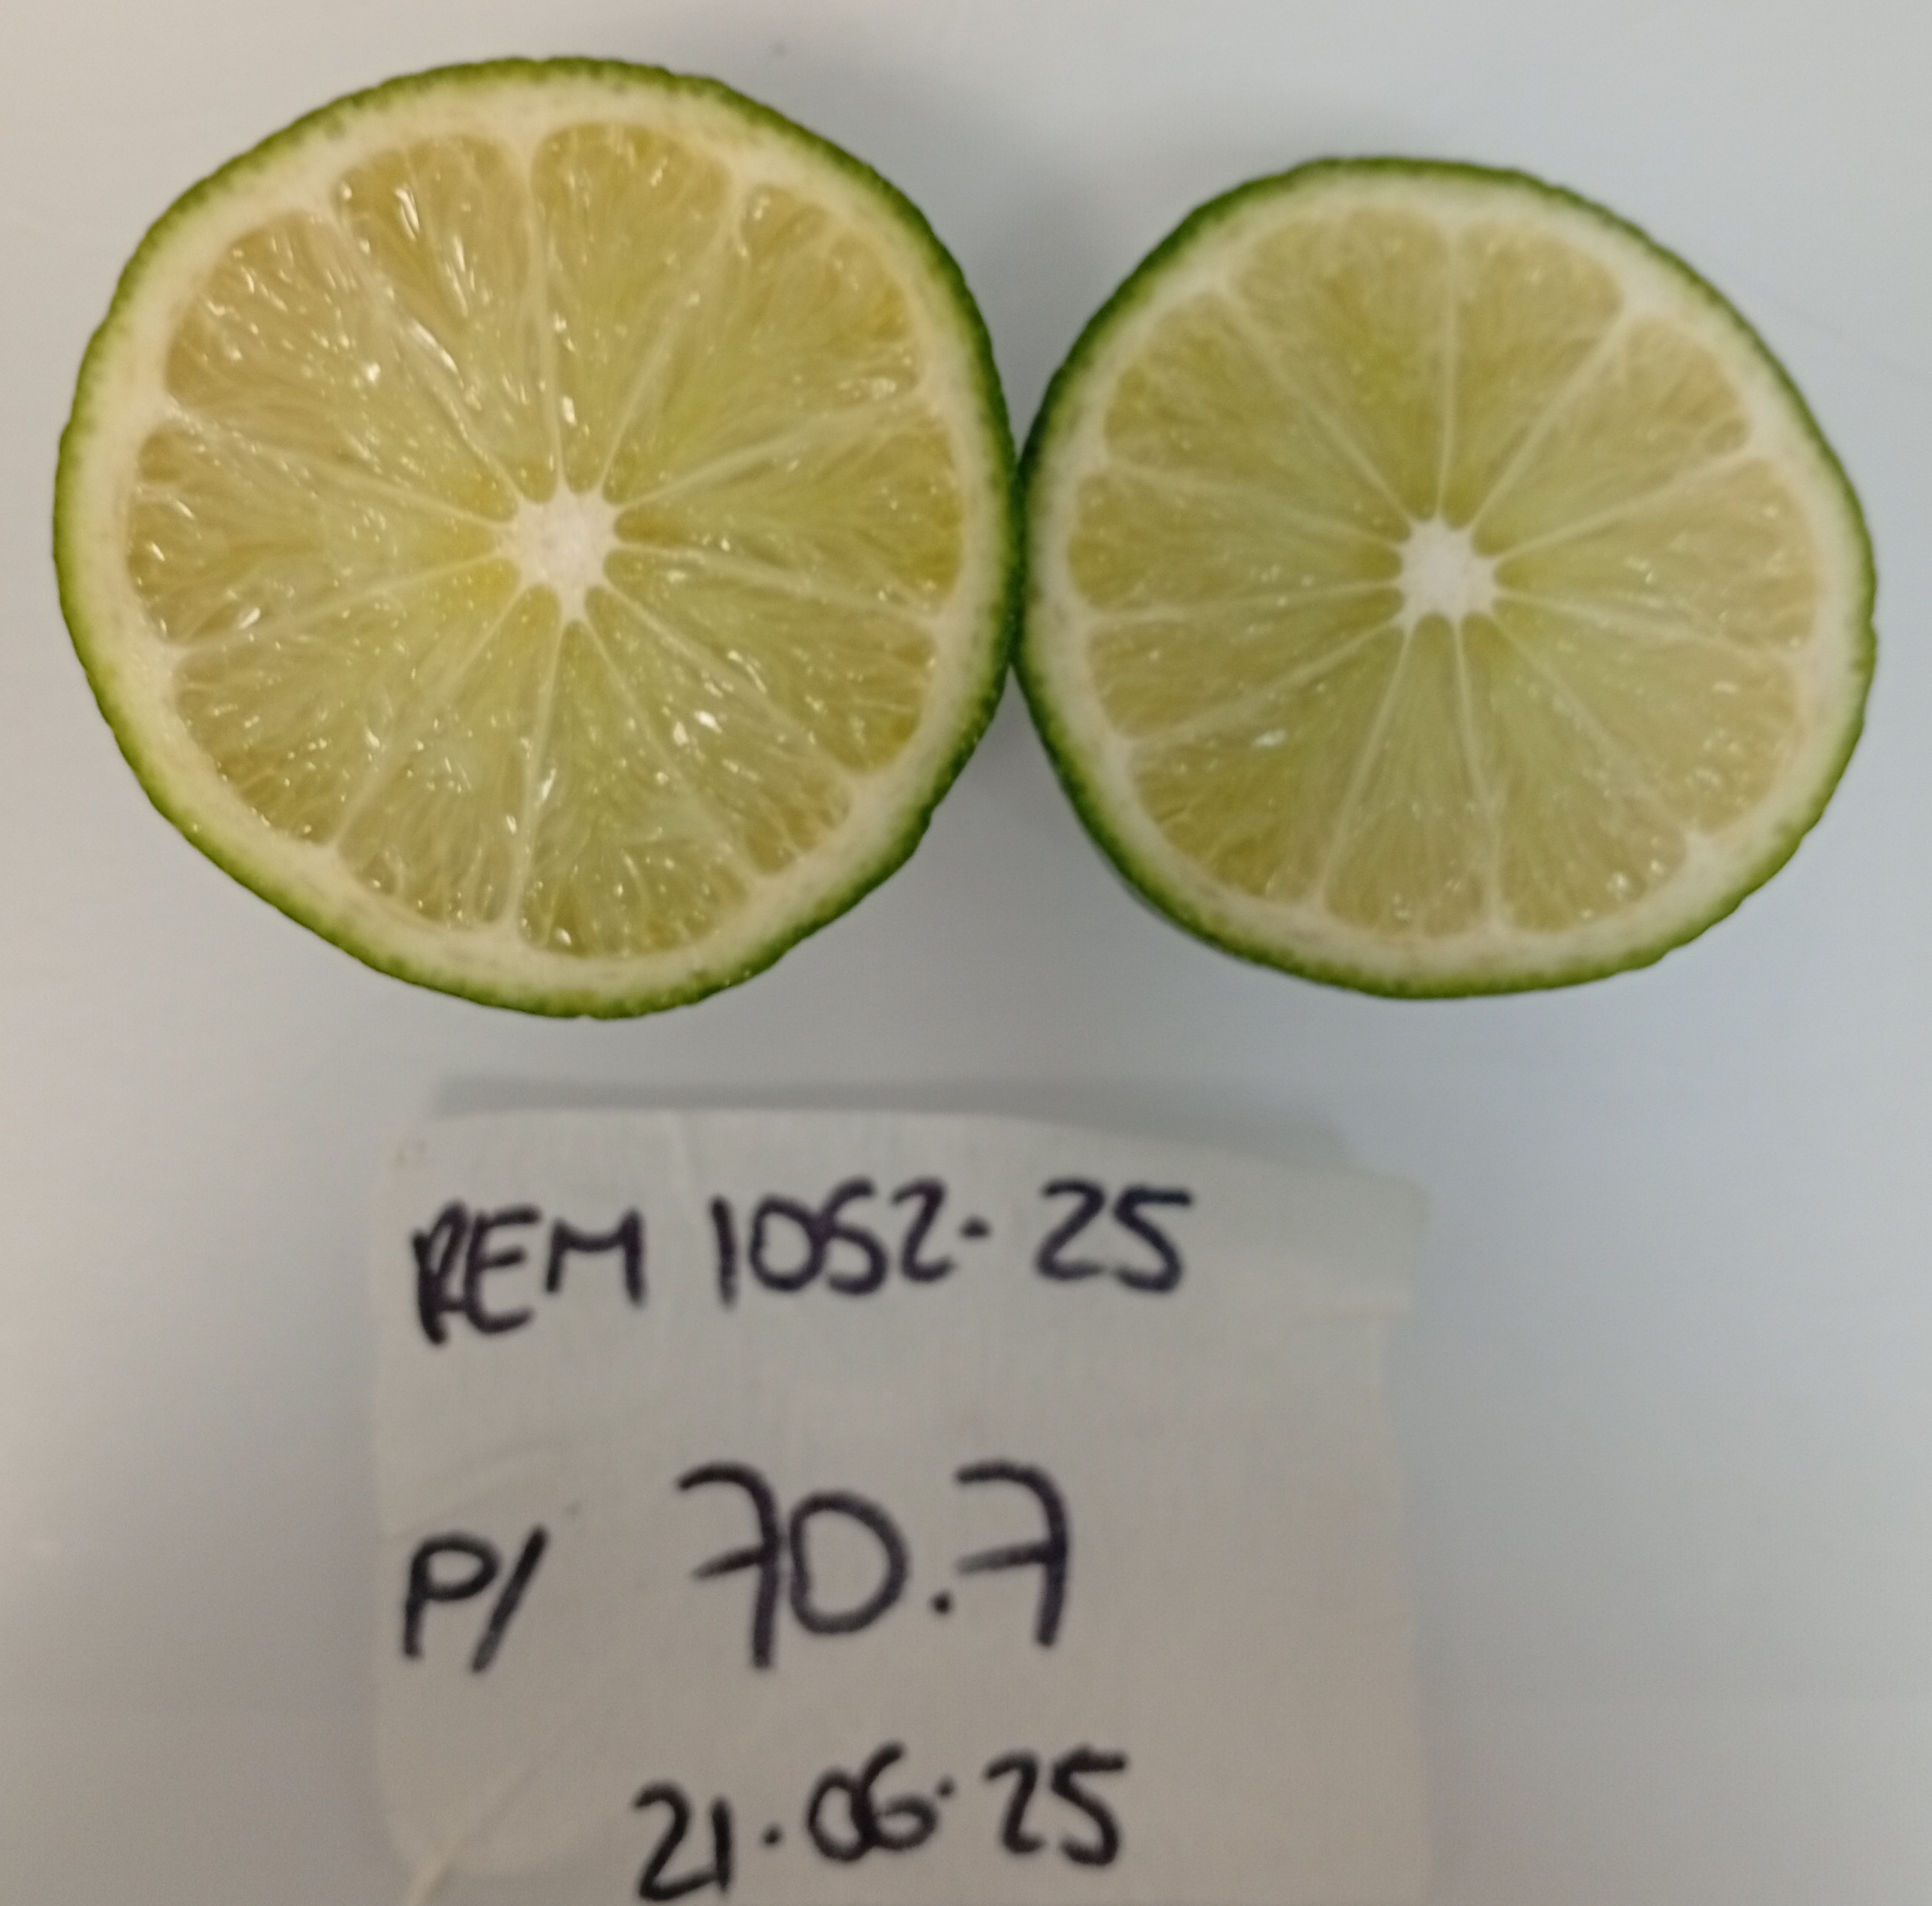 REM 1052-25
P/ 70.7
21.06.25